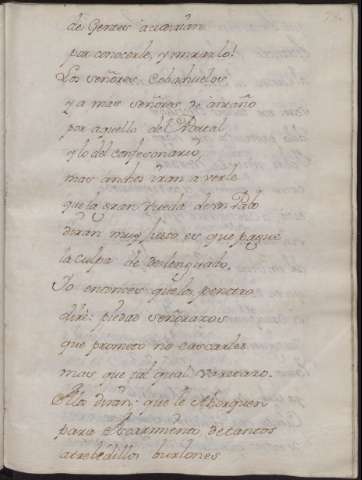 de Gentes acudirán
por conocerle, y mirarlo!
Los señores Cobachuelos
y a mas señores de antaño
por aquello del Portal
y lo del confesonario,
mas anchos iran a verle
que la gran rueda de un Pabo
diran muy justo es que pague
la culpa de deslenguado.
Yo entonces que los penetro
diré: piedad señorazos
que prometo no cascarles
mas que tal qual varetazo.
Ellos diran: que le Ahorquen
para Escarmiento de tantos
atrebidillos burlones